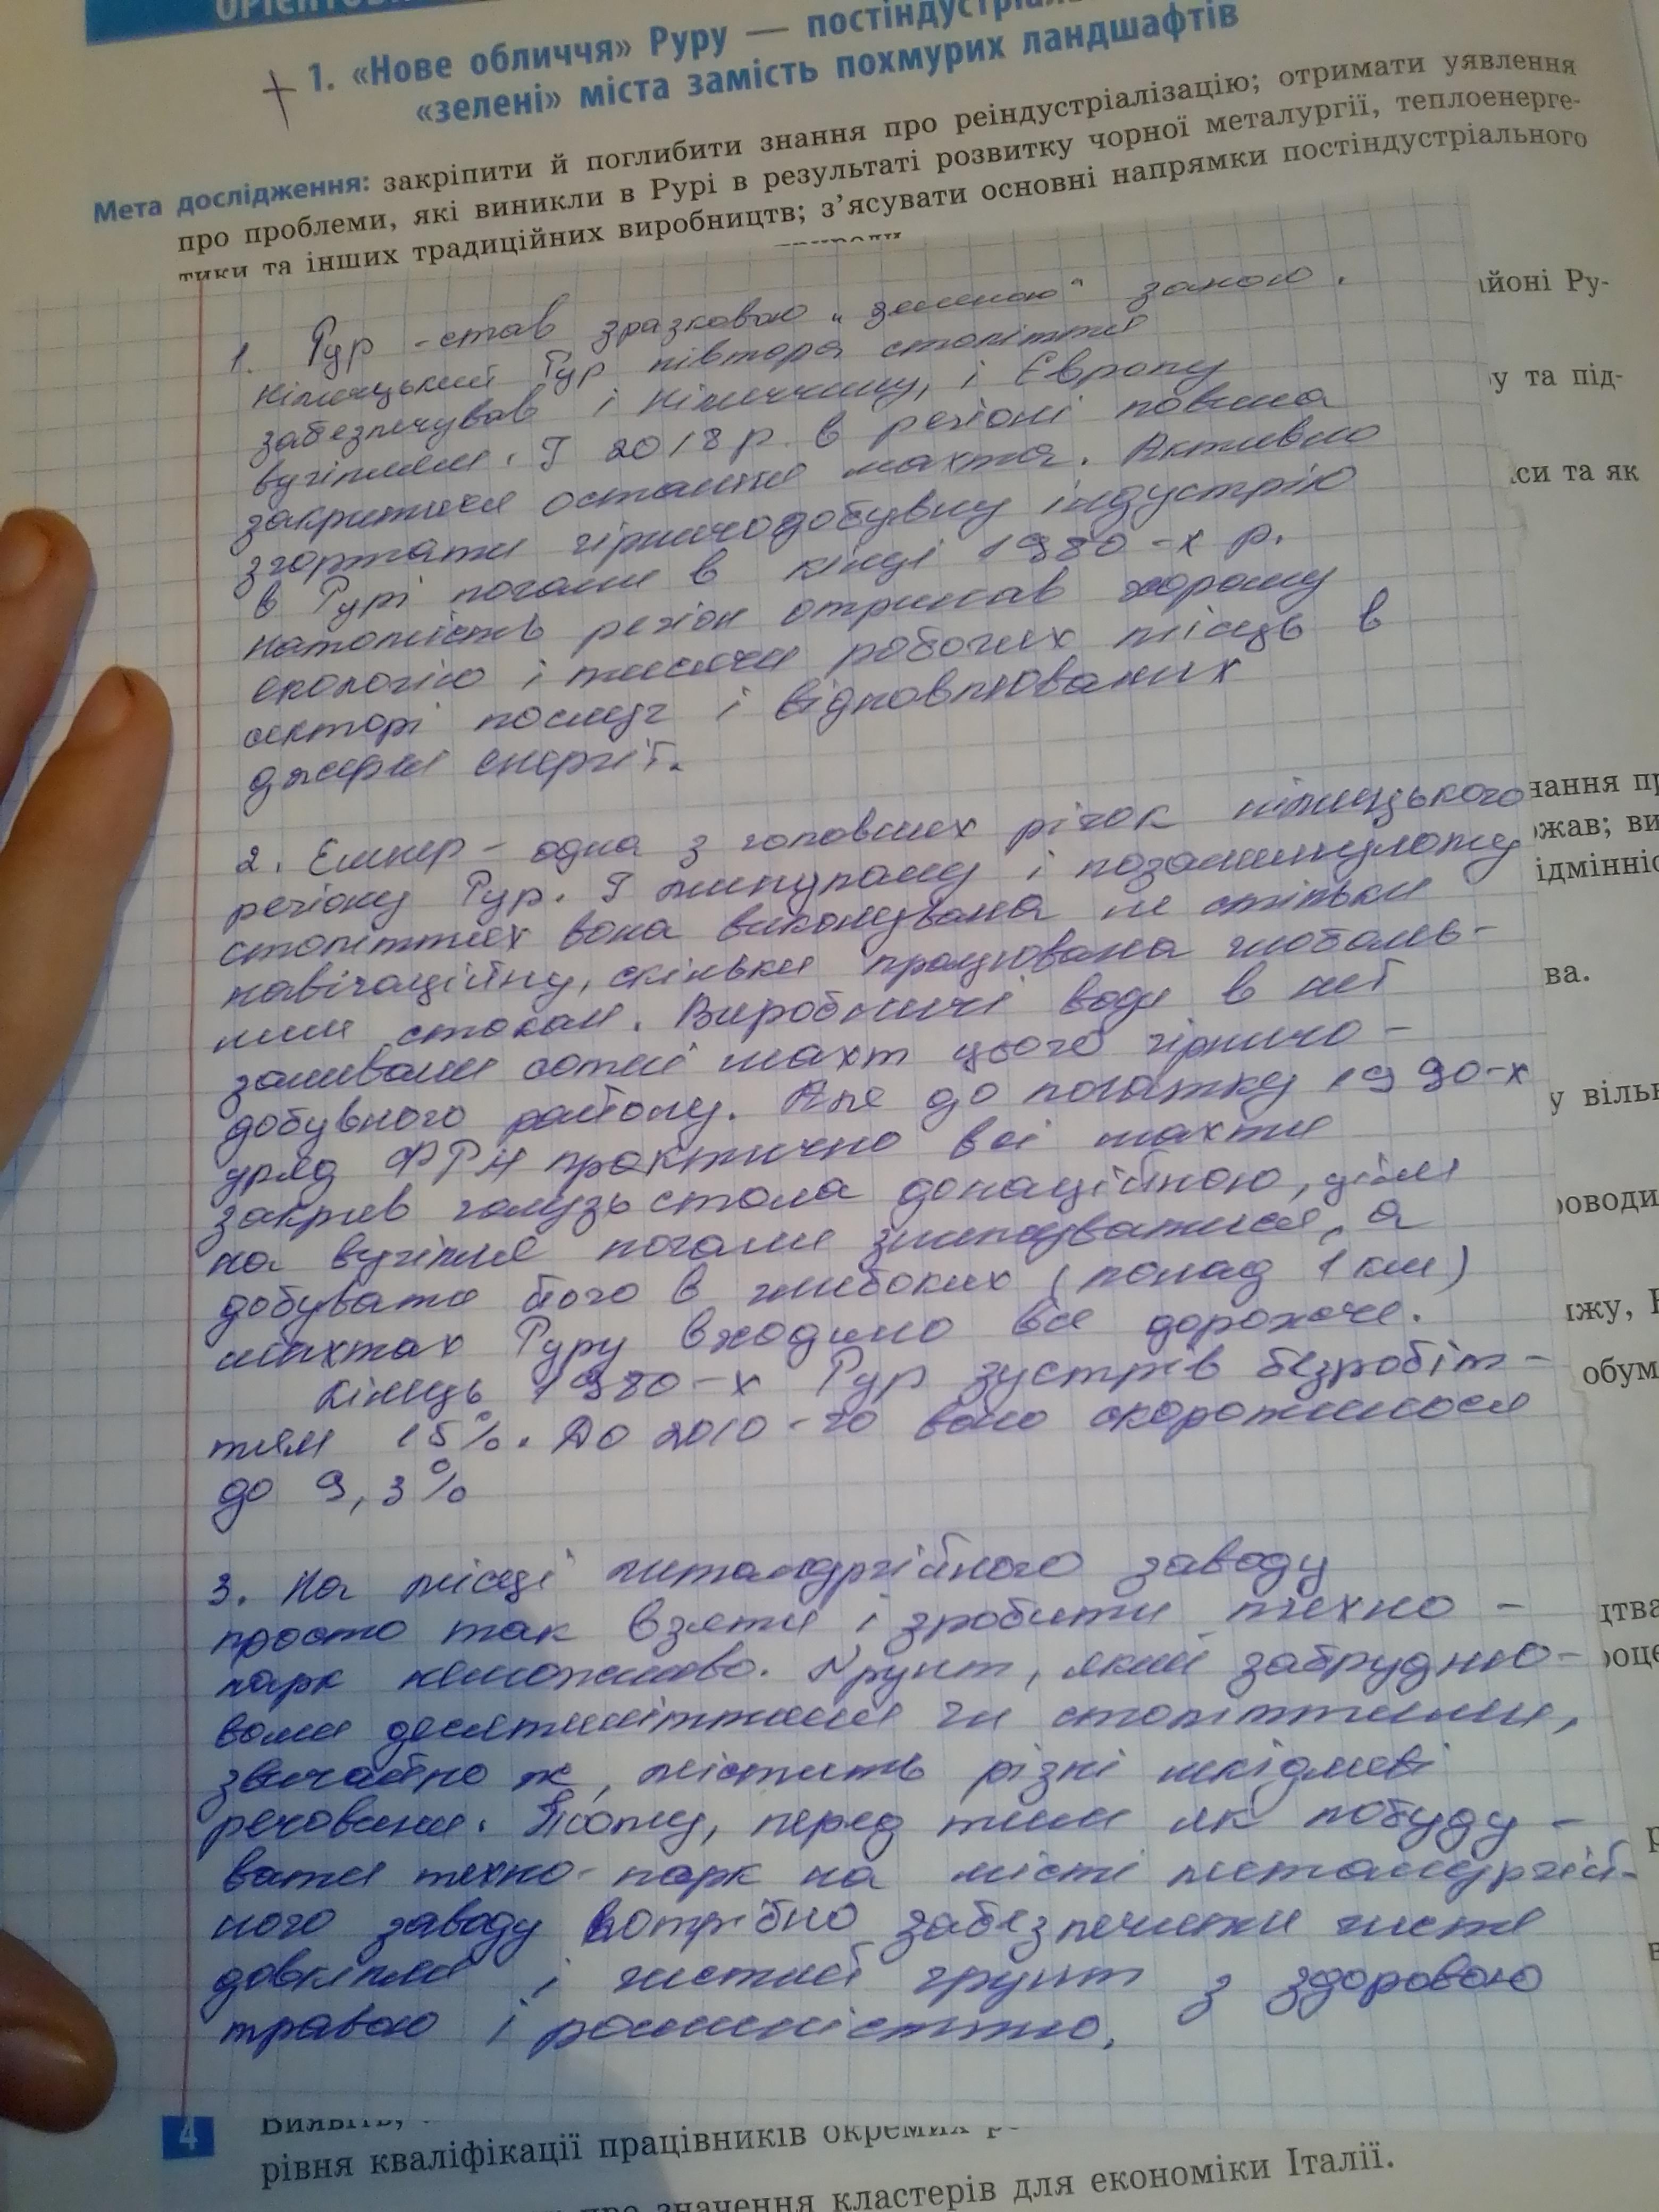 1. «Нове обличчя» Руру — постіндустріаль
«зелені» міста замість похмурих ландшафтів
Мета дослідження: закріпити й поглибити знання про реіндустріалізацію; отримати уявлення
про проблеми, які виникли в Рурі в результаті розвитку чорної металургії, теплоенерге-
тики та інших традиційних виробництв; з’ясувати основні напрямки постіндустріального
природи
1. Рур - став зразковою „зеленою" зоною.
Німецький Рур півтора століття
забезпечував і Німеччину, і Європу
вугіллям. У 2018 р. в регіоні повина
закритися остання шахта. Активно
згортати гірничодобувну індустрію
в Рурі почали в кінці 1980-х р.
натомість регіон отримав хорошу
екологію і тисячи робочих місць в
секторі послуг і відновлюваних
джерел енергії.
2. Емшер - одна з головних річок німецького
регіону Рур. У минулому і позаминулому
століттях вона виконувала не стільки
навігаційну, скільки працювала глобаль-
ним стоком. Виробничі води в неї
заливали сотні шахт цього гірничо-
добувного району. Але до початку 1990-х
уряд ФРН практично всі шахти
закрив галузь стала дотаційною, ціни
на вугілля почали знижуватися, а
добувати його в глибоких (понад 1 км)
шахтах Руру входило все дорожче.
Кінець 1980-х Рур зустрів безробіт-
тям 15%. До 2010-го воно скоротилося
до 9,3%
3. На місці металургійного заводу
просто так взяти і зробити техно-
парк неможливо. Ґрунт, який забрудню-
вали десятиліттями чи століттями,
звичайно ж, містить різні шкідливі
речовини. Тому, перед тим як побуду-
вати техно-парк на місті металургій-
ного заводу потрібно забезпечити чисте
довкілля і чистий грунт з здоровою
травою і рослинністтю.
йоні Ру-
у та під-
си та як
нання пр
жав; ви
ідмінніс
ва.
у вільн
роводи
жу,
обум
цтва
роце
4
Виявіть,
рівня кваліфікації працівників окремих р
про значення кластерів для економіки Італії.